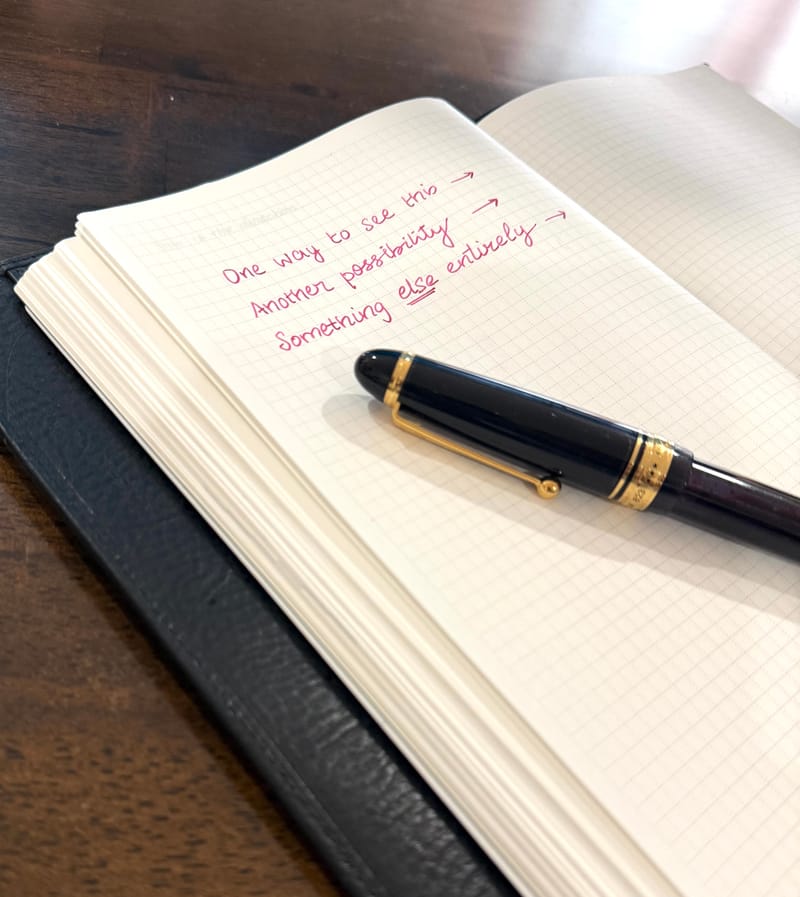 One way to see this →
Another possibility →
Something else entirely →
823